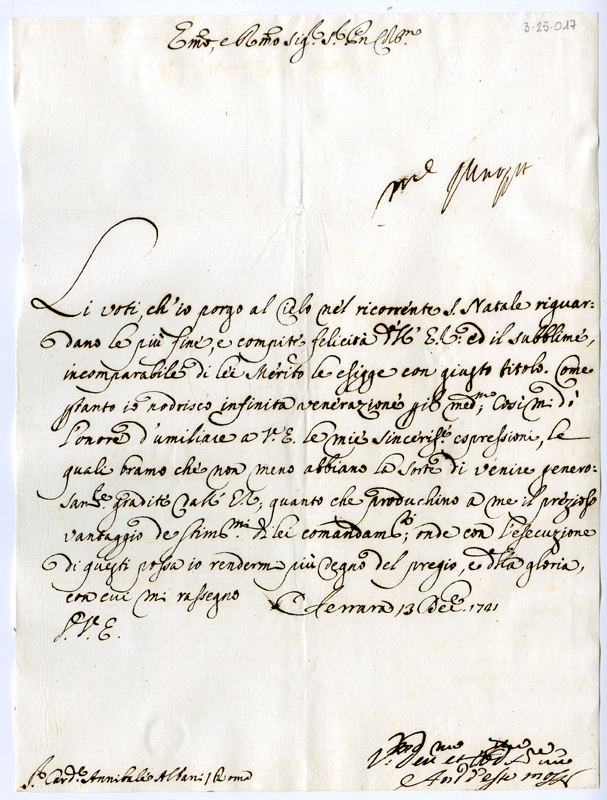 3-25-017
Emo, e Rmo Sigr.
Li voti, ch'io porgo al Cielo nel ricorrente S. Natale riguar-
dano le più fine, e compite felicità dell' E.V. ed il subblime,
incomparabile di lei Mérito le esigge con giusto titolo. Come
pertanto io nodrisco infinita venerazione med.mo Così mi dò
l'onore d'umiliare a V. E. le mie sinceris.e espressioni, le
quali bramo che non meno abbiano la sorte di venire genero-
sam.te gradite dall' E.V., quanto che produchino a me il prezioso
vantaggio de stim.mi di lei comandam.ti; onde con l'esecuzione
di questi possa io renderm più degno del pregio, e della gloria,
con cui mi rassegno
D. V. E.
Ferrara 13 Dec. 1721
Sr. Card.e Annibale Albani / Roma